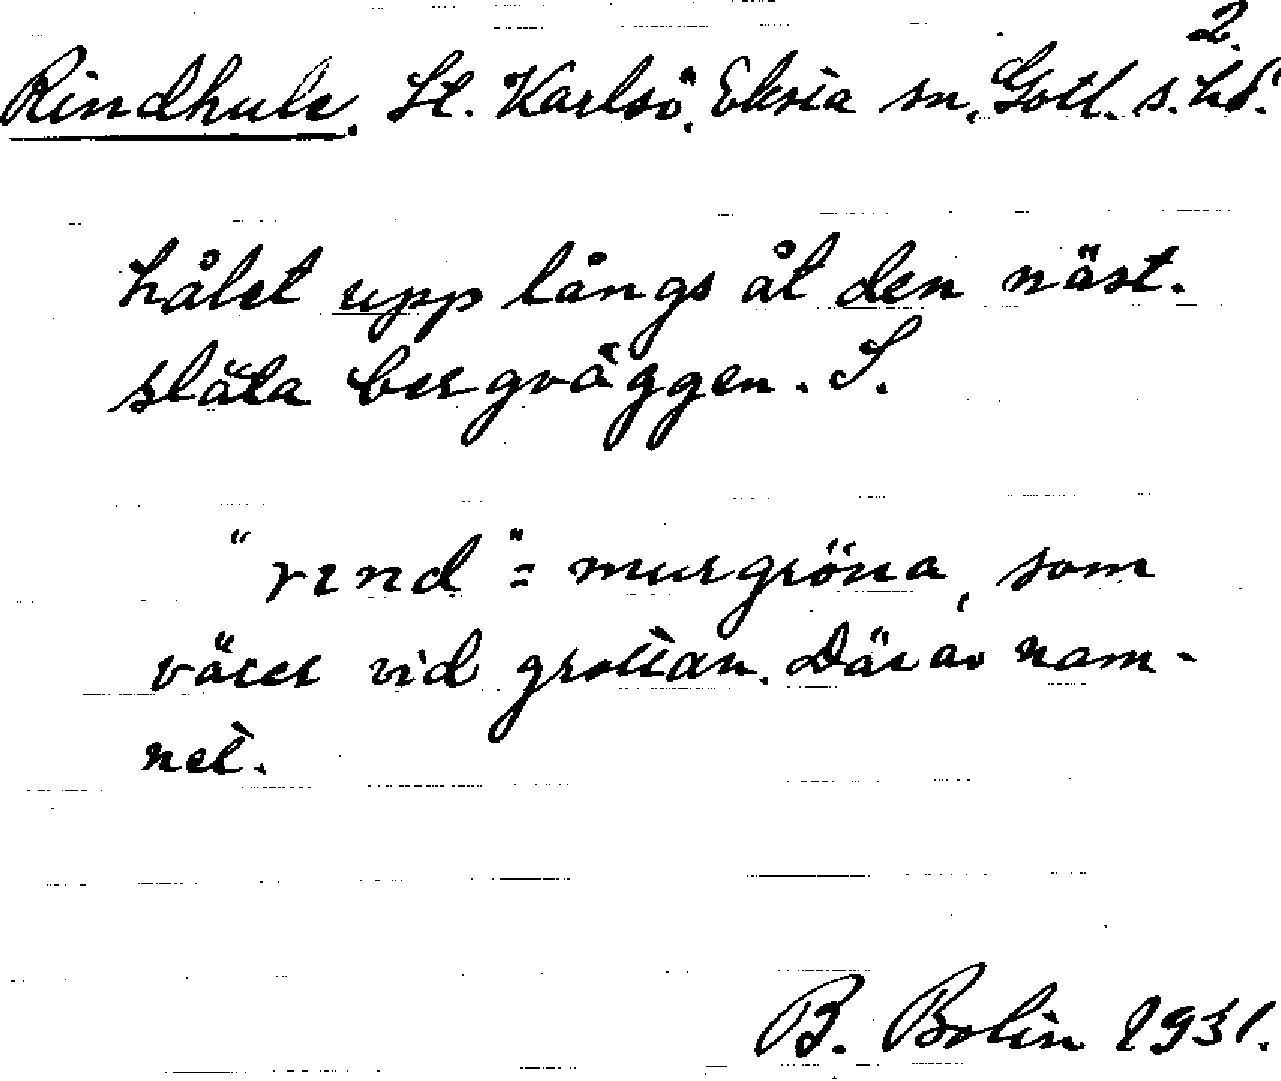 2.
Rindhule. St. Karlsö. Eksta sn, Gotl. s. hd.
hålet upp längs åt den näst.
släta bergväggen. S.
"rind" = murgröna, som
växer vid grottan. Därav nam-
net.
B. Bolin 1931.